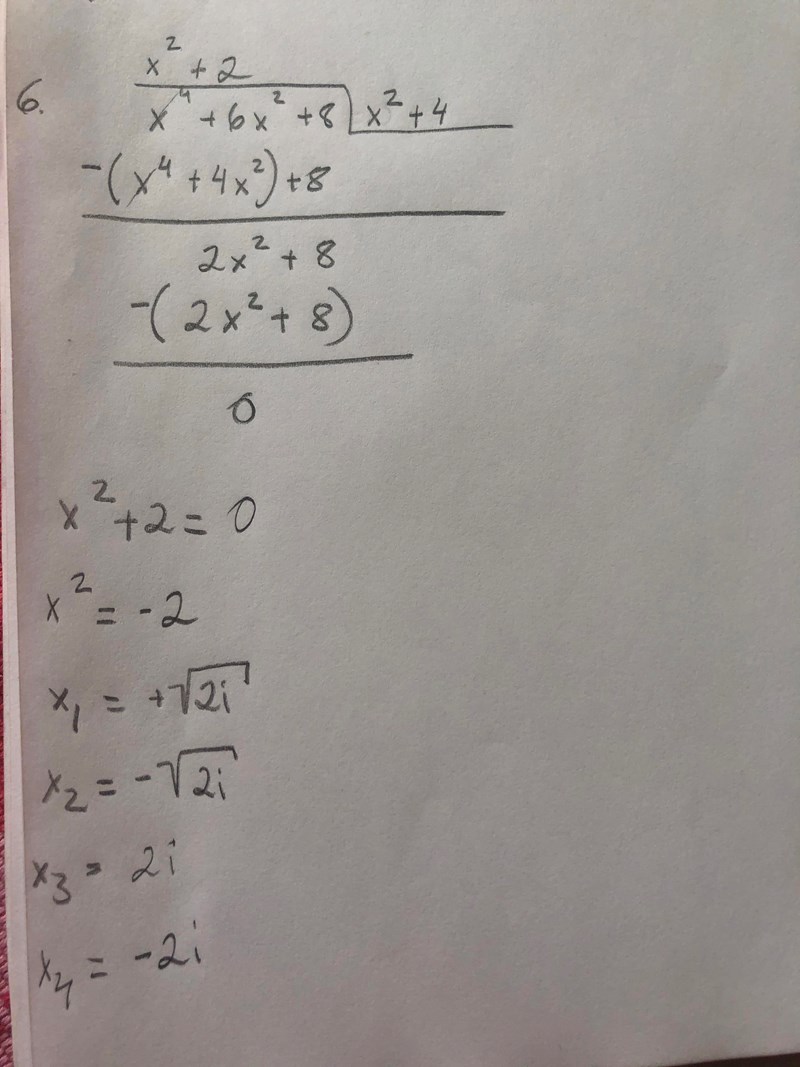 x² + 2
6. x⁴ + 6x² + 8 x² + 4
-(x⁴ + 4x²) + 8
2x² + 8
-(2x² + 8)
0
x² + 2 = 0
x² = -2
x₁ = +√2i
x₂ = -√2i
x₃ = 2i
x₄ = -2i